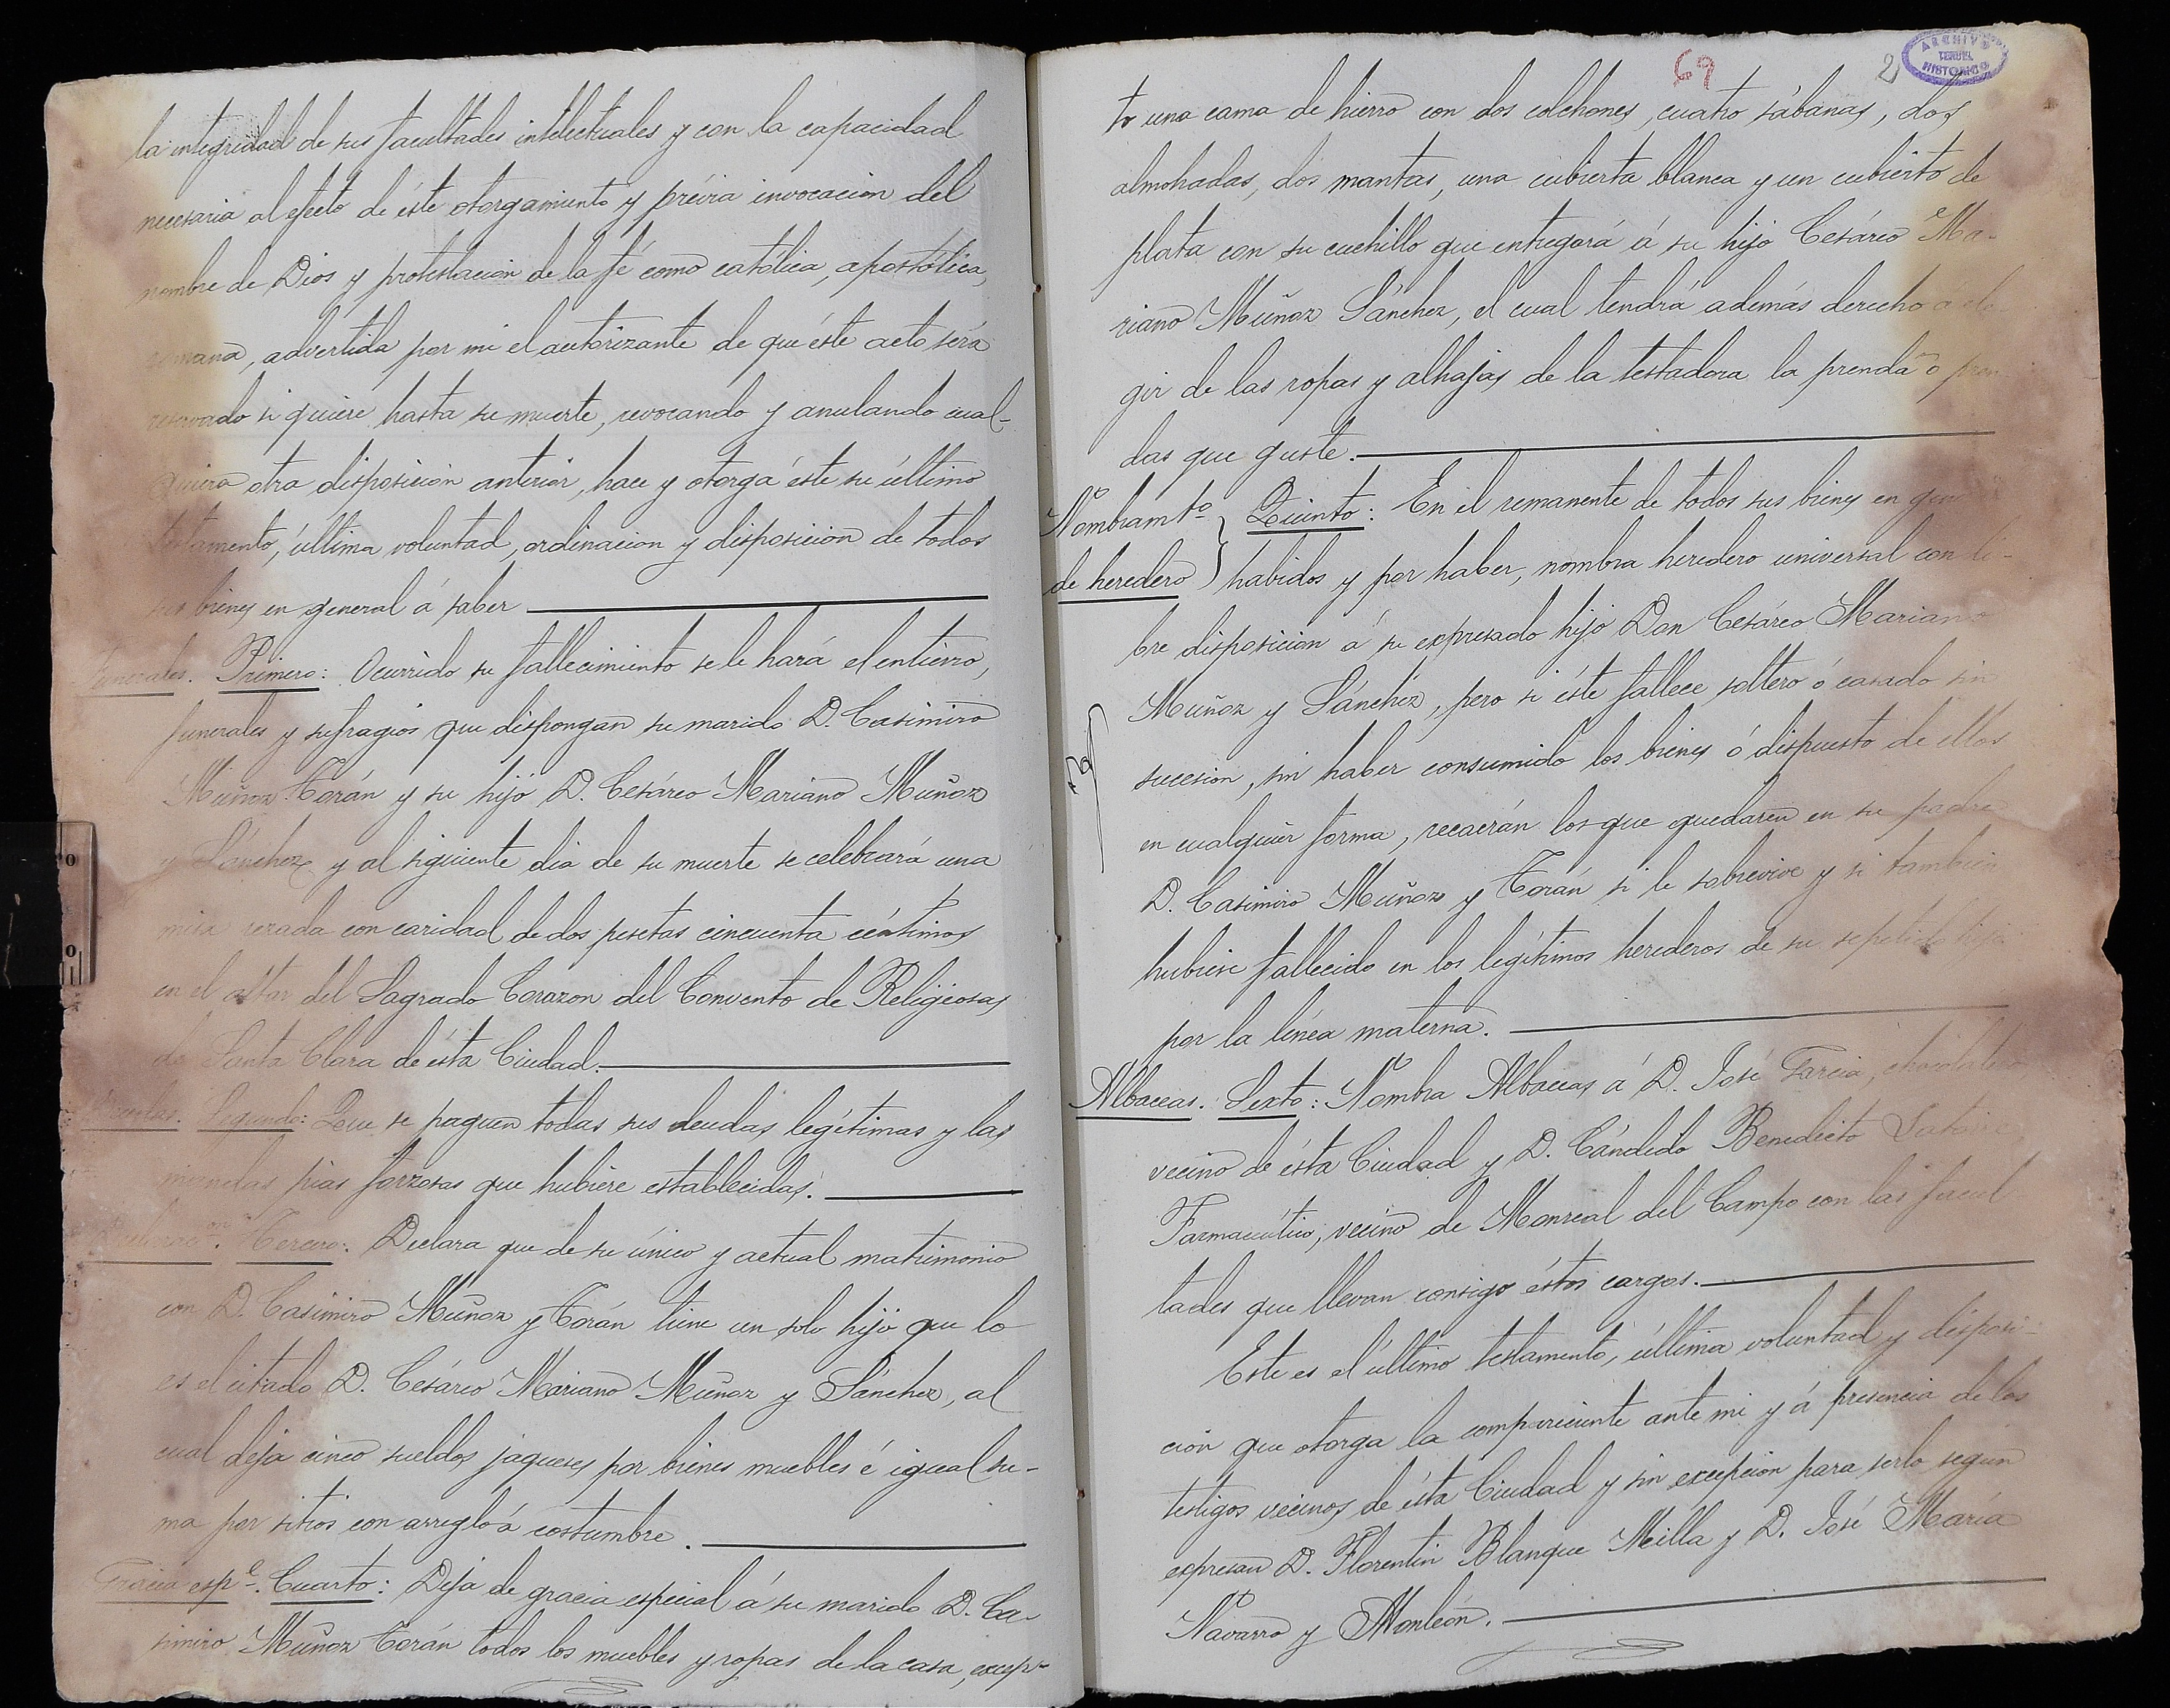 la integridad de sus facultades intelectuales y con la capacidad
necesaria al efecto de éste otorgamiento y prévia invocacion del
nombre de Dios y protestacion de la fé como católica, apostólica,
romana, advertida por mi el autorizante de que éste acto será
reservado si quiere hasta su muerte, revocando y anulando cual-
quiera otra disposicion anterior, hace y otorga éste su último
testamento, última voluntad, ordinacion y disposicion de todos
sus bienes en general á saber
Funerales. Primero: Ocurrido su fallecimiento se le hará el entierro,
funerales y sufragios que dispongan su marido D. Casimiro
Muñoz Torán y su hijo D. Cesáreo Mariano Muñoz
y Sánchez y al siguiente dia de su muerte se celebrará una
misa rezada con caridad de dos pesetas cincuenta céntimos
en el altar del Sagrado Corazon del Convento de Religiosas
de Santa Clara de ésta Ciudad.
Segundo: Que se paguen todas sus deudas legítimas y las
mandas pias forzosas que hubiere establecidas.
Declaracon. Tercero: Declara que de su único y actual matrimonio
con D. Casimiro Muñoz y Torán tiene un solo hijo que lo
es el citado D. Cesáreo Mariano Muñoz y Sánchez, al
cual deja cinco sueldos jaqueses por bienes muebles é igual su-
ma por sitios con arreglo á costumbre.
Gracia espl. Cuarto: Deja de gracia especial á su marido D. Ca-
simiro Muñoz Torán todos los muebles y ropas de la casa, excep-
69
2
ARCHIVO
TERUEL
HISTORICO
to una cama de hierro con dos colchones, cuatro sábanas, dos
almohadas, dos mantas, una cubierta blanca y un cubierto de
plata con su cuchillo que entregará á su hijo Cesáreo Ma-
riano Muñoz Sánchez, el cual tendrá además derecho á ele
gir de las ropas y alhajas de la testadora la prenda ó pren
das que guste.
Nombramto Quinto: En el remanente de todos sus bienes en gen
de heredero habidos y por haber, nombra heredero universal con li-
bre disposicion á su expresado hijo Don Cesáreo Mariano
Muñoz y Sánchez, pero si éste fallece soltero ó casado sin
sucesion, sin haber consumido los bienes ó dispuesto de ellos
en cualquier forma, recaerán los que quedaren en su padre
D. Casimiro Muñoz y Torán si le sobrevive y si tambien
hubiese fallecido en los legítimos herederos de su repetido hijo
por la línea materna.
Albaceas. Sexto: Nombra Albaceas á D. José Garcia, chocolatero
vecino de ésta Ciudad y D. Cándido Benedicto Latorre
Farmacéutico, vecino de Monreal del Campo con las facul
tades que llevan consigo éstos cargos.
Este es el último testamento, última voluntad y disposi-
cion que otorga la compareciente ante mi y á presencia de los
testigos vecinos de ésta Ciudad y sin excepcion para serlo segun
expresan D. Florentin Blanque Milla y D. José María
Navarro y Monleón.